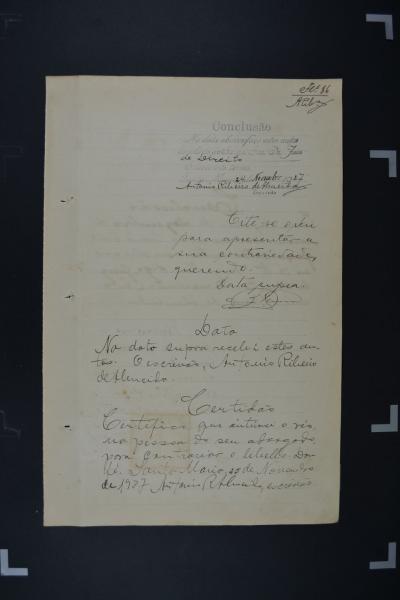 Fls 86
Conclusão
Na data
de Direito
24 Novembro 1927
Antonio Ribeiro de Almeida
Escrivão
Cite-se o réu
para apresentar a
sua contrariedade,
querendo.
Data supra.
Data
Na data supra recebi estes au-
tos. O escrivão, Antonio Ribeiro
de Almeida.
Certidão
Certifico que intimei o réo,
na pessoa do seu advogado
para contrariar o libello. Dou
fé. Santa Maria, de Novembro
de 1927 Antonio R Almeida, escrivão